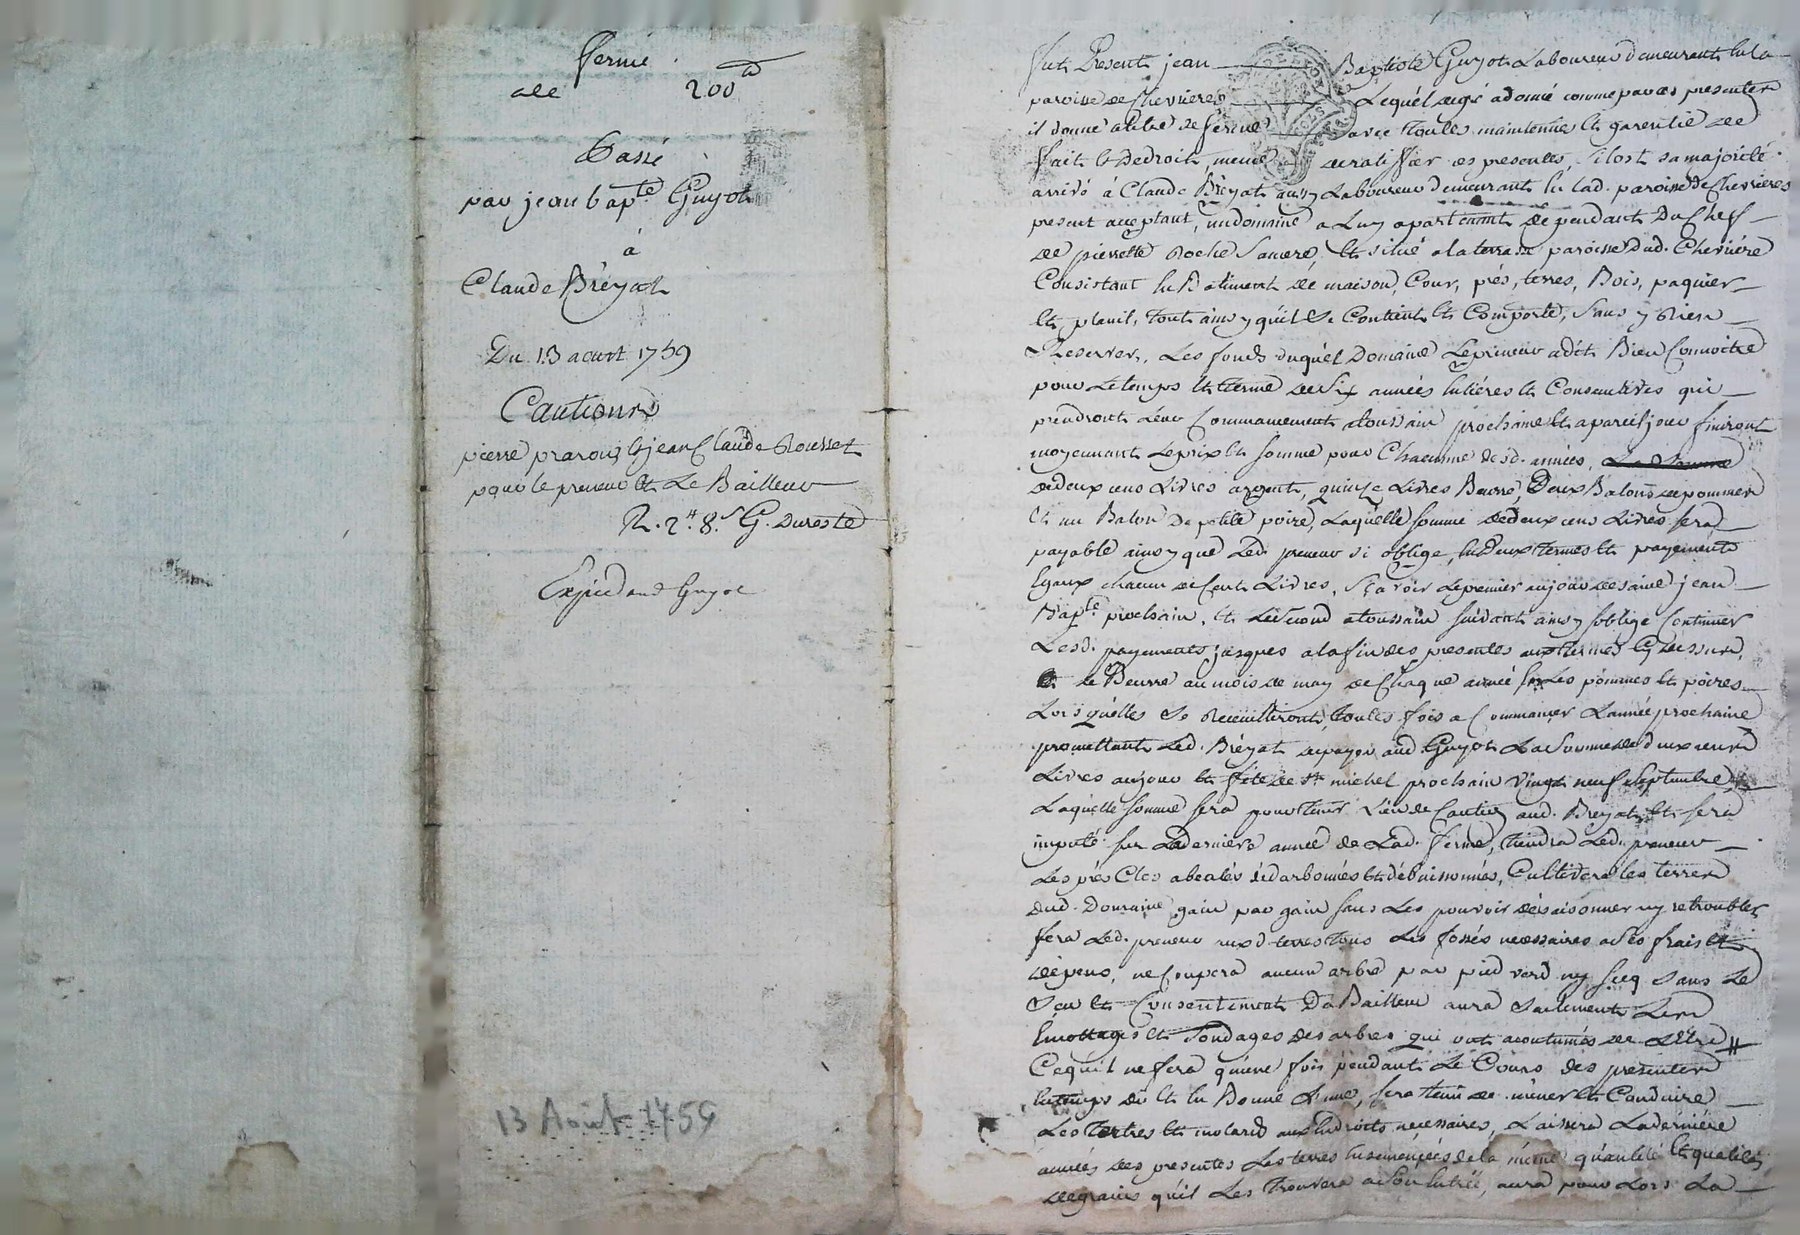 ferme
de 200 ₶
Passé
par jean bapte Guyot
à
Claude Bréyat
Du 13 aoust 1759
Cautions
pierre et jean Claude Rousset
pour le preneur et Le Bailleur
R. 2₶ 8s G. Dureste
Expied aud Guyot
13 Août 1759
fut Present jean Baptiste Guyot Laboureur demeurant en la
paroisse de Chevrieres Lequel de gré a donné comme par ces presentes
il donne a titre de ferme avec toutes maintenües et garentie de
fait et de droit, meme de ratiffier ces presentes, sitost sa majorité
arrivé à Claude Bréyat aussy Laboureur demeurant en lad. paroisse de Chevrieres
present acceptant, un domaine a Luy apartenant dependant Du Chef
de pierrette Roche Sa mere, et situé a la terrasse paroisse dud. Chevriére
Consistant en Batiment de maison, Cour, prés, terres, Bois, paquier
et planil, tout ainsy qu'il Se Contient et Comporte, Sans y Rien
Reserver, Les fonds duquel Domaine Le preneur a dit Bien Connoitre
pour Le temps et terme de Six années entiéres et Consecutives qui
prendront Leur Commancement a toussain prochaine et a pareil jour finiront
moyennant Le prix et somme pour Chacunne desd. années, La Somme
de deux cens Livres argent, quinze Livres Beurre, Deux Balons de pommes
et un Balon De petite poire, Laquelle somme de deux cens Livres sera
payable ainsy que Led. preneur si oblige, en Deux termes et payements
Egaux chacun de Cent Livres, Sçavoir Le premier au jour de saint jean
Bapte prochain, et Le second a toussain suivant ainsy s'oblige Continuer
Lesd. payements jusques a la fin des presentes aux termes Cy dessus,
et le Beurre au mois de may de Chaque année et Les pommes et poires
Lors quelles Se Recueilliront, toutes fois a Commancer L'année prochaine
promettant Led. Bréyat de payer aud. Guyot La Somme de deux cens
Livres au jour et fête de St michel prochain vingt neuf septembre,
Laquelle somme sera pour tenir Lieu de aud. Breyat et sera
imputé sur La derniére année de Lad. ferme, tiendra Led. preneur
Les prés Clos abealés dédarbonnés et débuissonnés, Cultivera les terres
dud. Domaine gain par gain sans Les pouvoir déssaisonner ny retroubler
fera Led. preneur auxd. terres tous Les fossés necessaires a Ses frais et
dépens, ne Coupera aucun arbre par pied verd ny secq Sans Le
Sçeu et Consentiment Du Bailleur aura Seulement Les
Emottages et Tondages des arbres qui ont acoutumés de L'être
Ce qu'il ne fera qu'une fois pendant Le Cours des presentes
en temps dû et en Bonne Lune, sera tenu de mener et Conduire
Les tertres et molard aux Endroits necessaires, Laissera La derniére
années des presentes Les terres Ensemencées de la même quantité et qualités
de grains qu'il Les trouvera a Son Entrée, aura pour Lors La